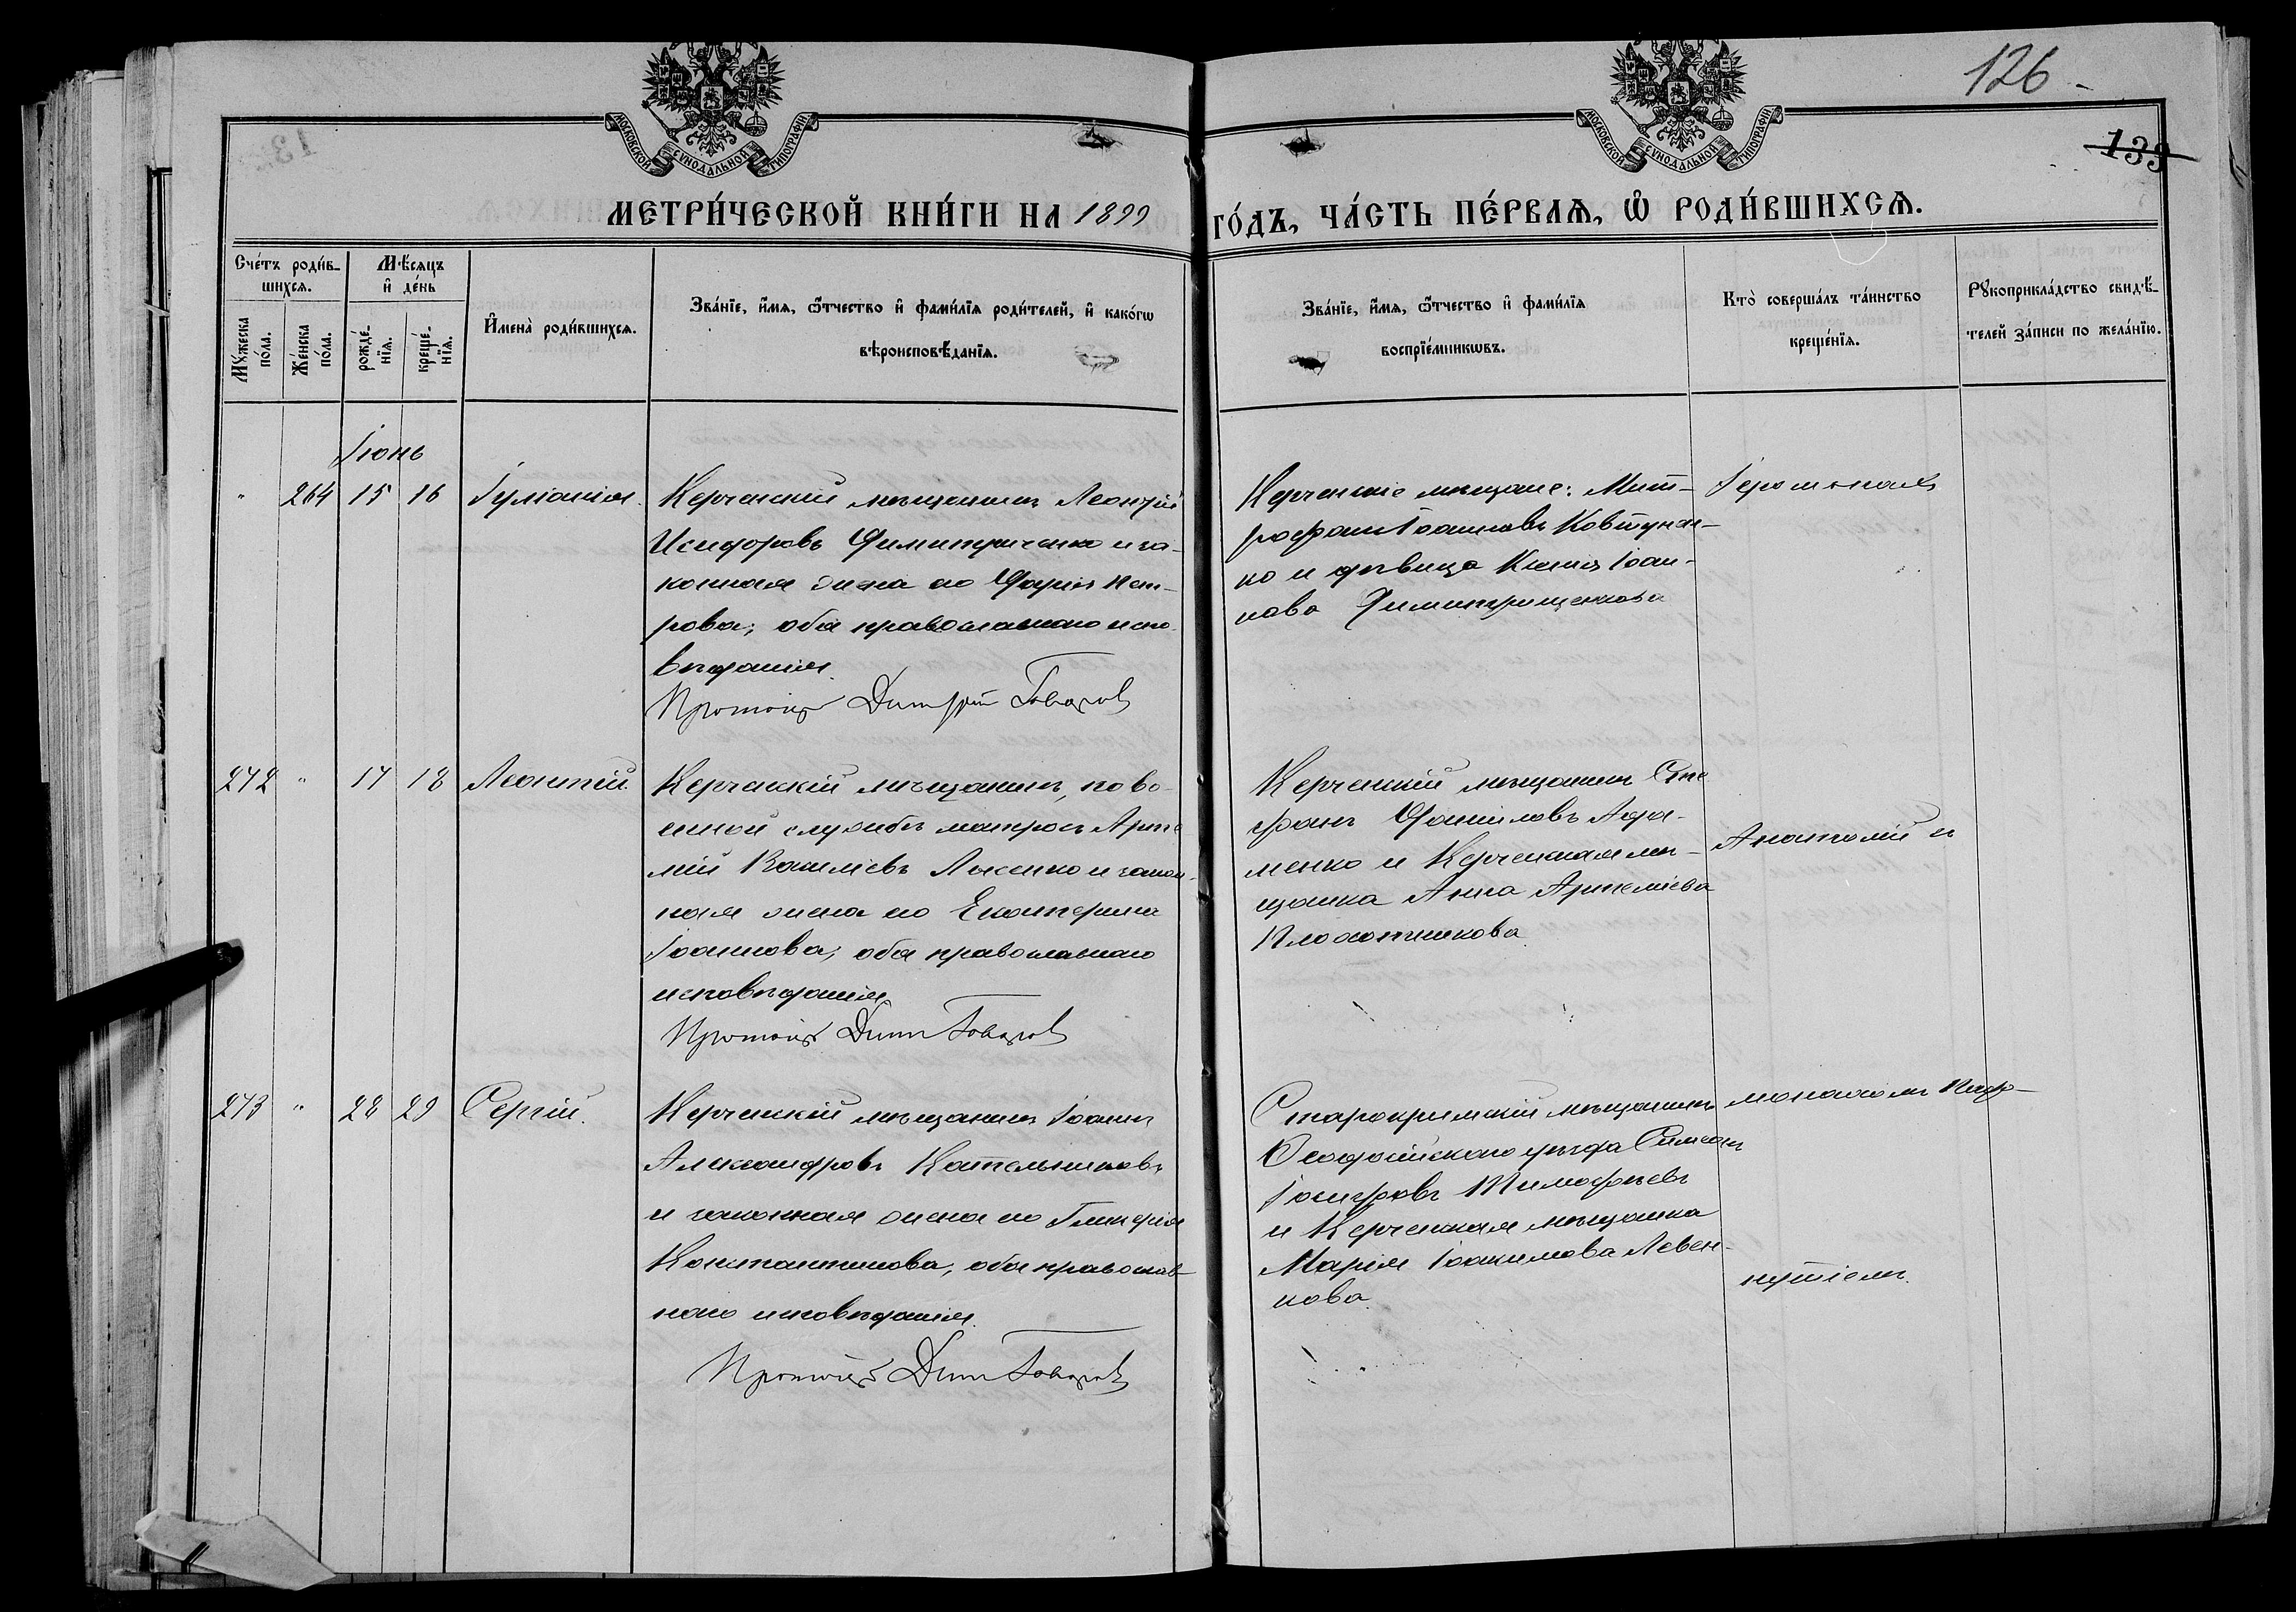 126
139
МОСКОВСКОЙ СУНОДАЛЬНОЙ ТИПОГРАФІИ
МОСКОВСКОЙ СУНОДАЛЬНОЙ ТИПОГРАФІИ
МЕТРИ́ЧЕСКОЙ КНИ́ГИ НА 1899 ГО́ДЪ, ЧА́СТЬ ПЕ́РВАѦ, Ѡ҆ РОДИ́ВШИХСѦ.
Сче́тъ роди́в-
шихся.
Мѣ́сяцъ
и҆ де́нь
Мꙋ́жеска
по́ла.
Же́нска
по́ла.
рожде́-
нїя.
креще́-
нїя.
И҆мена̀ роди́вшихся.
Зва́нїе, и҆́мя, ѻ҆́тчество и҆ фами́лїя роди́телей, и҆ како́гѡ
вѣроисповѣ́данїя.
Зва́нїе, и҆́мя, ѻ҆́тчество и҆ фами́лїя
воспрїе́мникѡвъ.
Кто̀ соверша́лъ та́инство
креще́нїя.
Рꙋкоприкла́дство свидѣ́-
телей за́писи по жела́нїю.
Іюнь
" 264 15 16 Іуліанія.
Керченскій мѣщанинъ Леонтій
Исидоровъ Димитриченко и за-
конная жена его Дарія Пет-
рова; оба православнаго испо-
вѣданія.
Протоіер Димитрій
Керченскіе мѣщане: Мит-
рофанъ Іоанновъ Ковтунен-
ко и дѣвица Ксенія Іоан-
нова Димитрищенкова
Іеромонахъ
272 " 17 18 Леонтій.
Керченскій мѣщанинъ, по во-
енной службѣ матросъ Арте
мій Василіевъ Лысенко и закон-
ная жена его Екатерина
Іоаннова; оба православнаго
исповѣданія.
Протоіер Дим
Керченскій мѣщанинъ Сте
фанъ Даніиловъ Ада-
менко и Керченская мѣ-
щанка Анна Артеміева
Плохотникова
Анатолій и
273 " 28 29 Сергій.
Керченскій мѣщанинъ Іоаннъ
Александровъ Котельниковъ
и законная жена его Гликерія
Константинова; оба православ-
наго исповѣданія.
Протоіер Дим
Старокрымскій мѣщанинъ
Ѳеодосійскаго уѣзда Симеонъ
Іосифовъ Тимофѣевъ
и Керченская мѣщанка
Марія Іоакимова Левен-
кова.
монахомъ Паф-
нутіемъ.